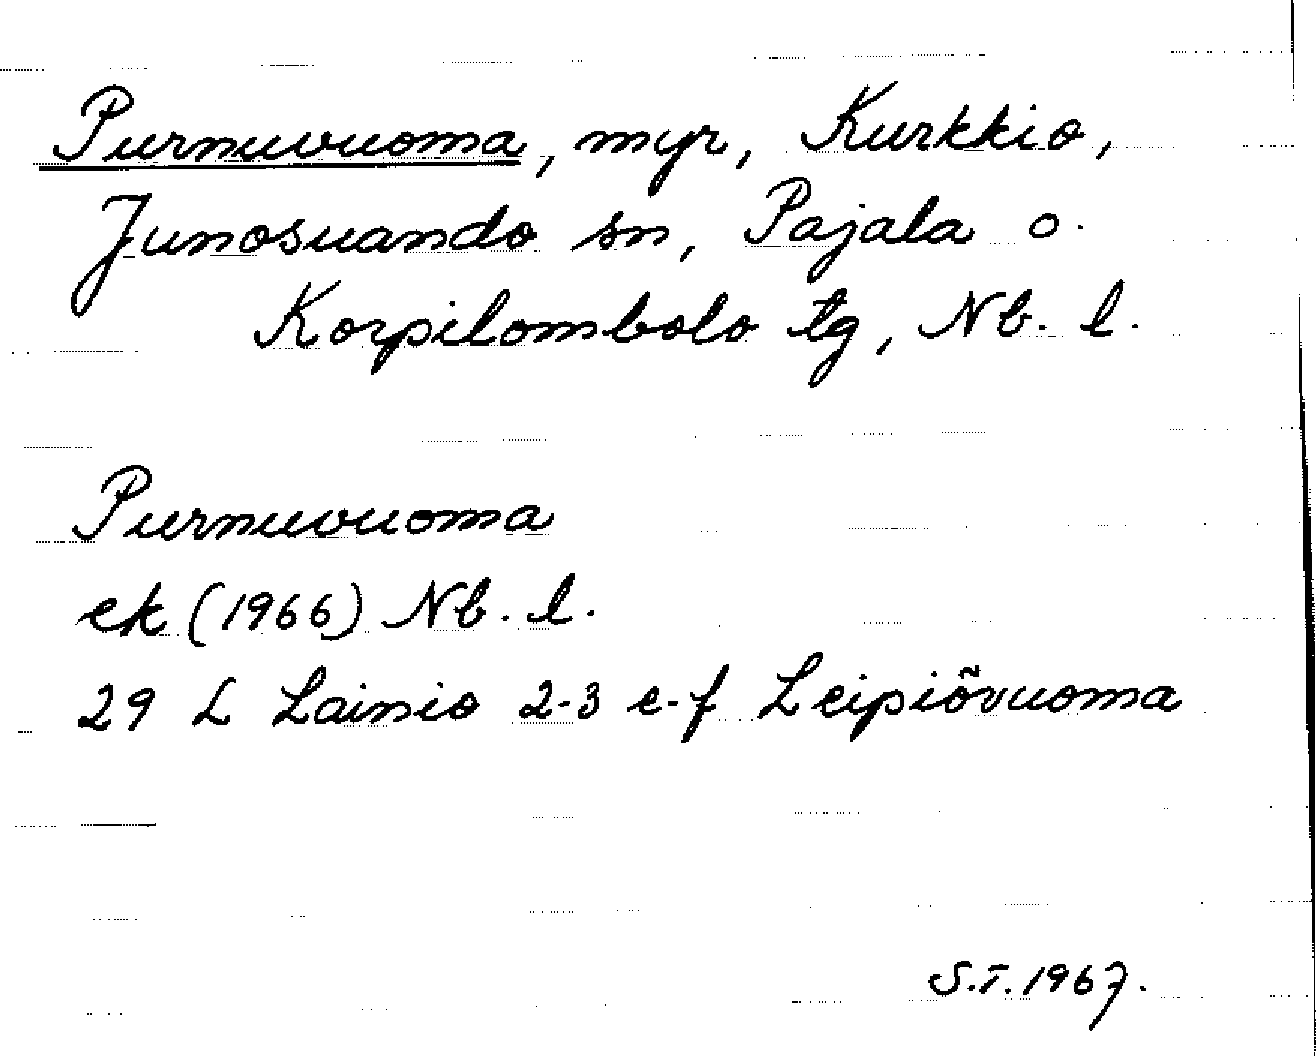 Purnuvuoma, myr, Kurkkio,
Junosuando sn, Pajala o.
Korpilombolo tg, Nb. l.
Purnuvuoma
ek (1966) Nb. l.
29 L Lainio 2-3 e-f Leipiõvuoma
S.T. 1967.